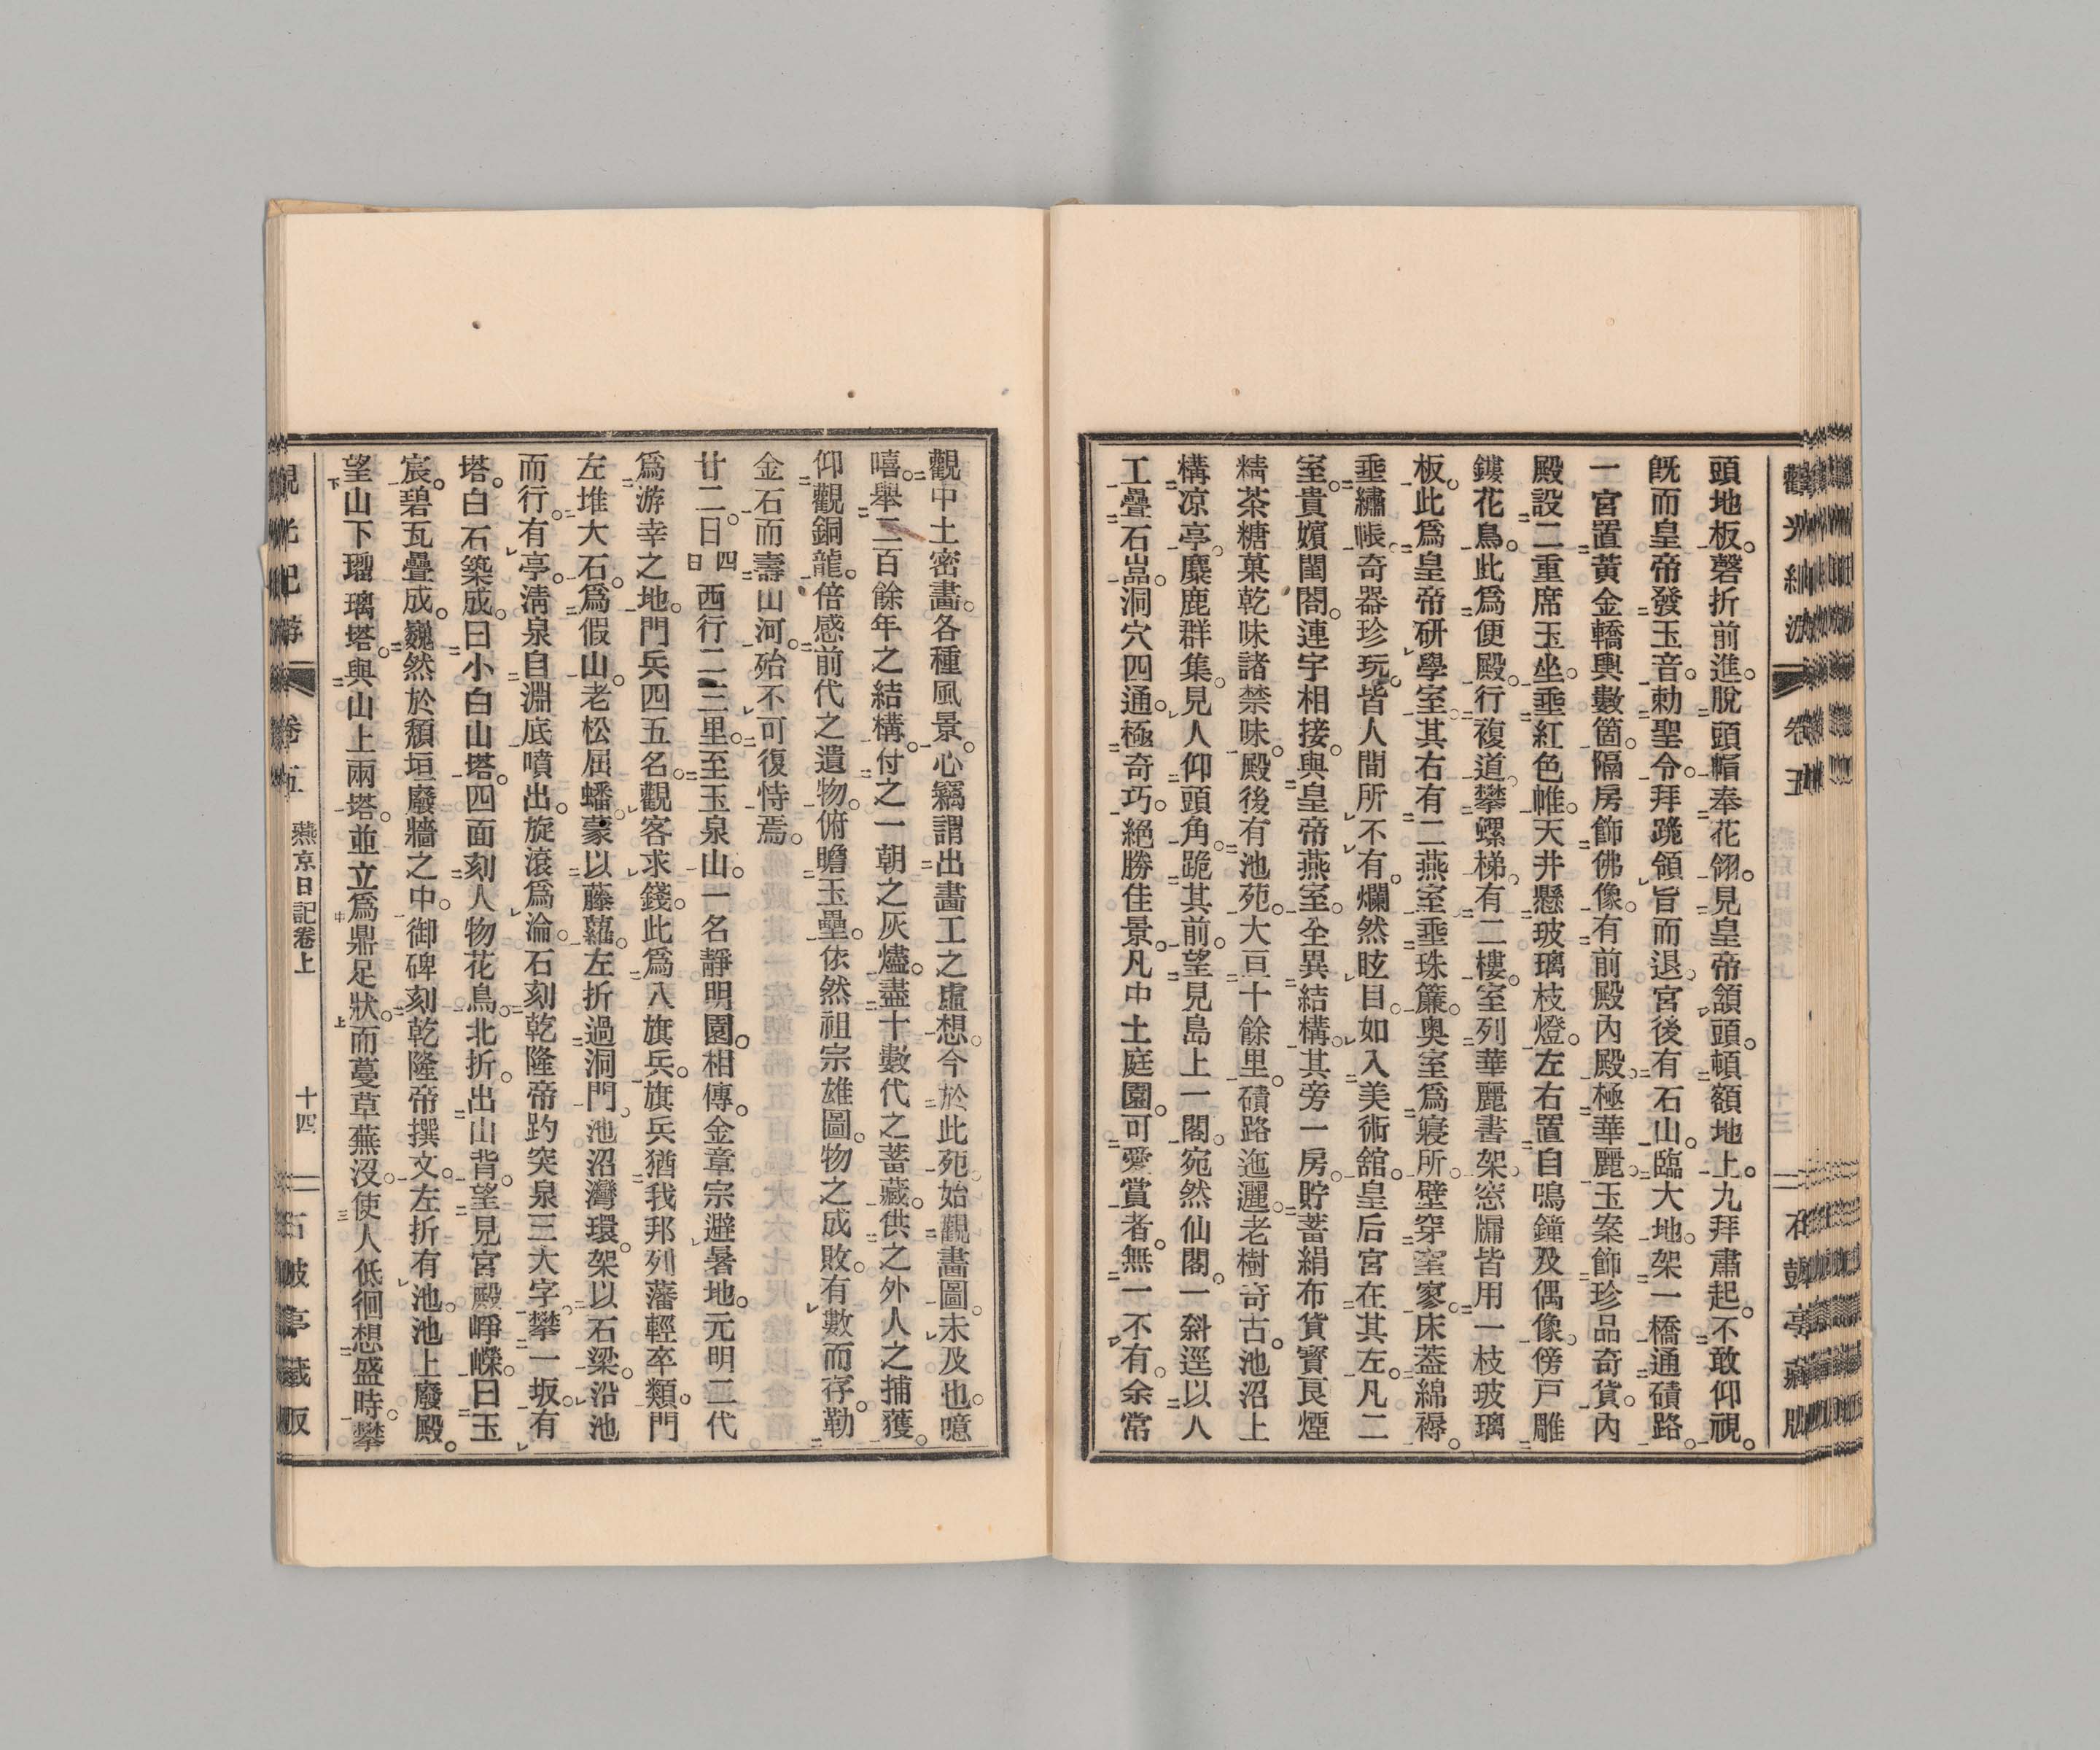 觀光紀游 卷五 石鼓亭藏版
頭地板。磬折前進。脫頭帽奉花翎。見皇帝頷頭。頓額地上。九拜肅起。不敢仰視。
既而皇帝發玉音。勅聖令。拜跪領旨而退。宮後有石山。臨大地。架一橋通磧路。
一宮置黃金轎輿數箇。隔房飾佛像。有前殿內殿。極華麗。玉案飾珍品奇貨。內
殿設二重席玉坐。垂紅色帷。天井懸玻璃枝燈。左右置自鳴鐘及偶像。傍戶雕
鏤花鳥。此爲便殿。行複道。攀螺梯。有二樓。室列華麗書架。窓牖皆用一枝玻璃
板。此爲皇帝研學室。其右有二燕室。垂珠簾。奧室爲寢所。壁穿室寥。床蓋綿褥。
垂繡帳。奇器珍玩。皆人間所不有。爛然眩目。如入美術舘。皇后宮在其左。凡二
室。貴嬪閨閤。連宇相接。與皇帝燕室。全異結構。其旁一房。貯蓄絹布貨寳良煙
精茶糖菓乾味諸禁味。殿後有池苑。大亘十餘里。磧路迤邐。老樹奇古。池沼上
構凉亭。麋鹿群集。見人仰頭角。跪其前。望見島上一閣。宛然仙閣。一斜逕以人
工疊石嵓。洞穴四通。極奇巧。絕勝佳景。凡中土庭園。可愛賞者。無一不有。余常
觀中土密畫。各種風景。心竊謂出畫工之虛想。今於此苑。始觀畫圖。未及也。噫
嘻。舉二百餘年之結構。付之一朝之灰燼。盡十數代之蓄藏。供之外人之捕獲。
仰觀銅龍。倍感前代之遺物。俯瞻玉壘。依然祖宗雄圖。物之成敗。有數而存。勒
金石而壽山河。殆不可復恃焉。
廿二日。四日 西行二三里。至玉泉山。一名靜明園。相傳。金章宗避暑地。元明二代
爲游幸之地。門兵四五名。觀客求錢。此爲八旗兵。旗兵猶我邦列藩輕卒類。門
左堆大石。爲假山。老松屈蟠。蒙以藤蘿。左折過洞門。池沼灣環。架以石梁。沿池
而行。有亭。淸泉自淵底噴出。旋滾爲淪。石刻乾隆帝趵突泉三大字。攀一坂。有
塔。白石築成。曰小白山塔。四面刻人物花鳥。北折。出山背。望見宮殿崢嶸。曰玉
宸。碧瓦疊成。巍然於頹垣廢牆之中。御碑刻乾隆帝撰文。左折有池。池上廢殿。
望山下瑠璃塔。與山上兩塔。並立爲鼎足狀。而蔓草蕪沒。使人低徊想盛時。攀
觀光紀游 卷五 燕京日記卷上 十四 石鼓亭藏版